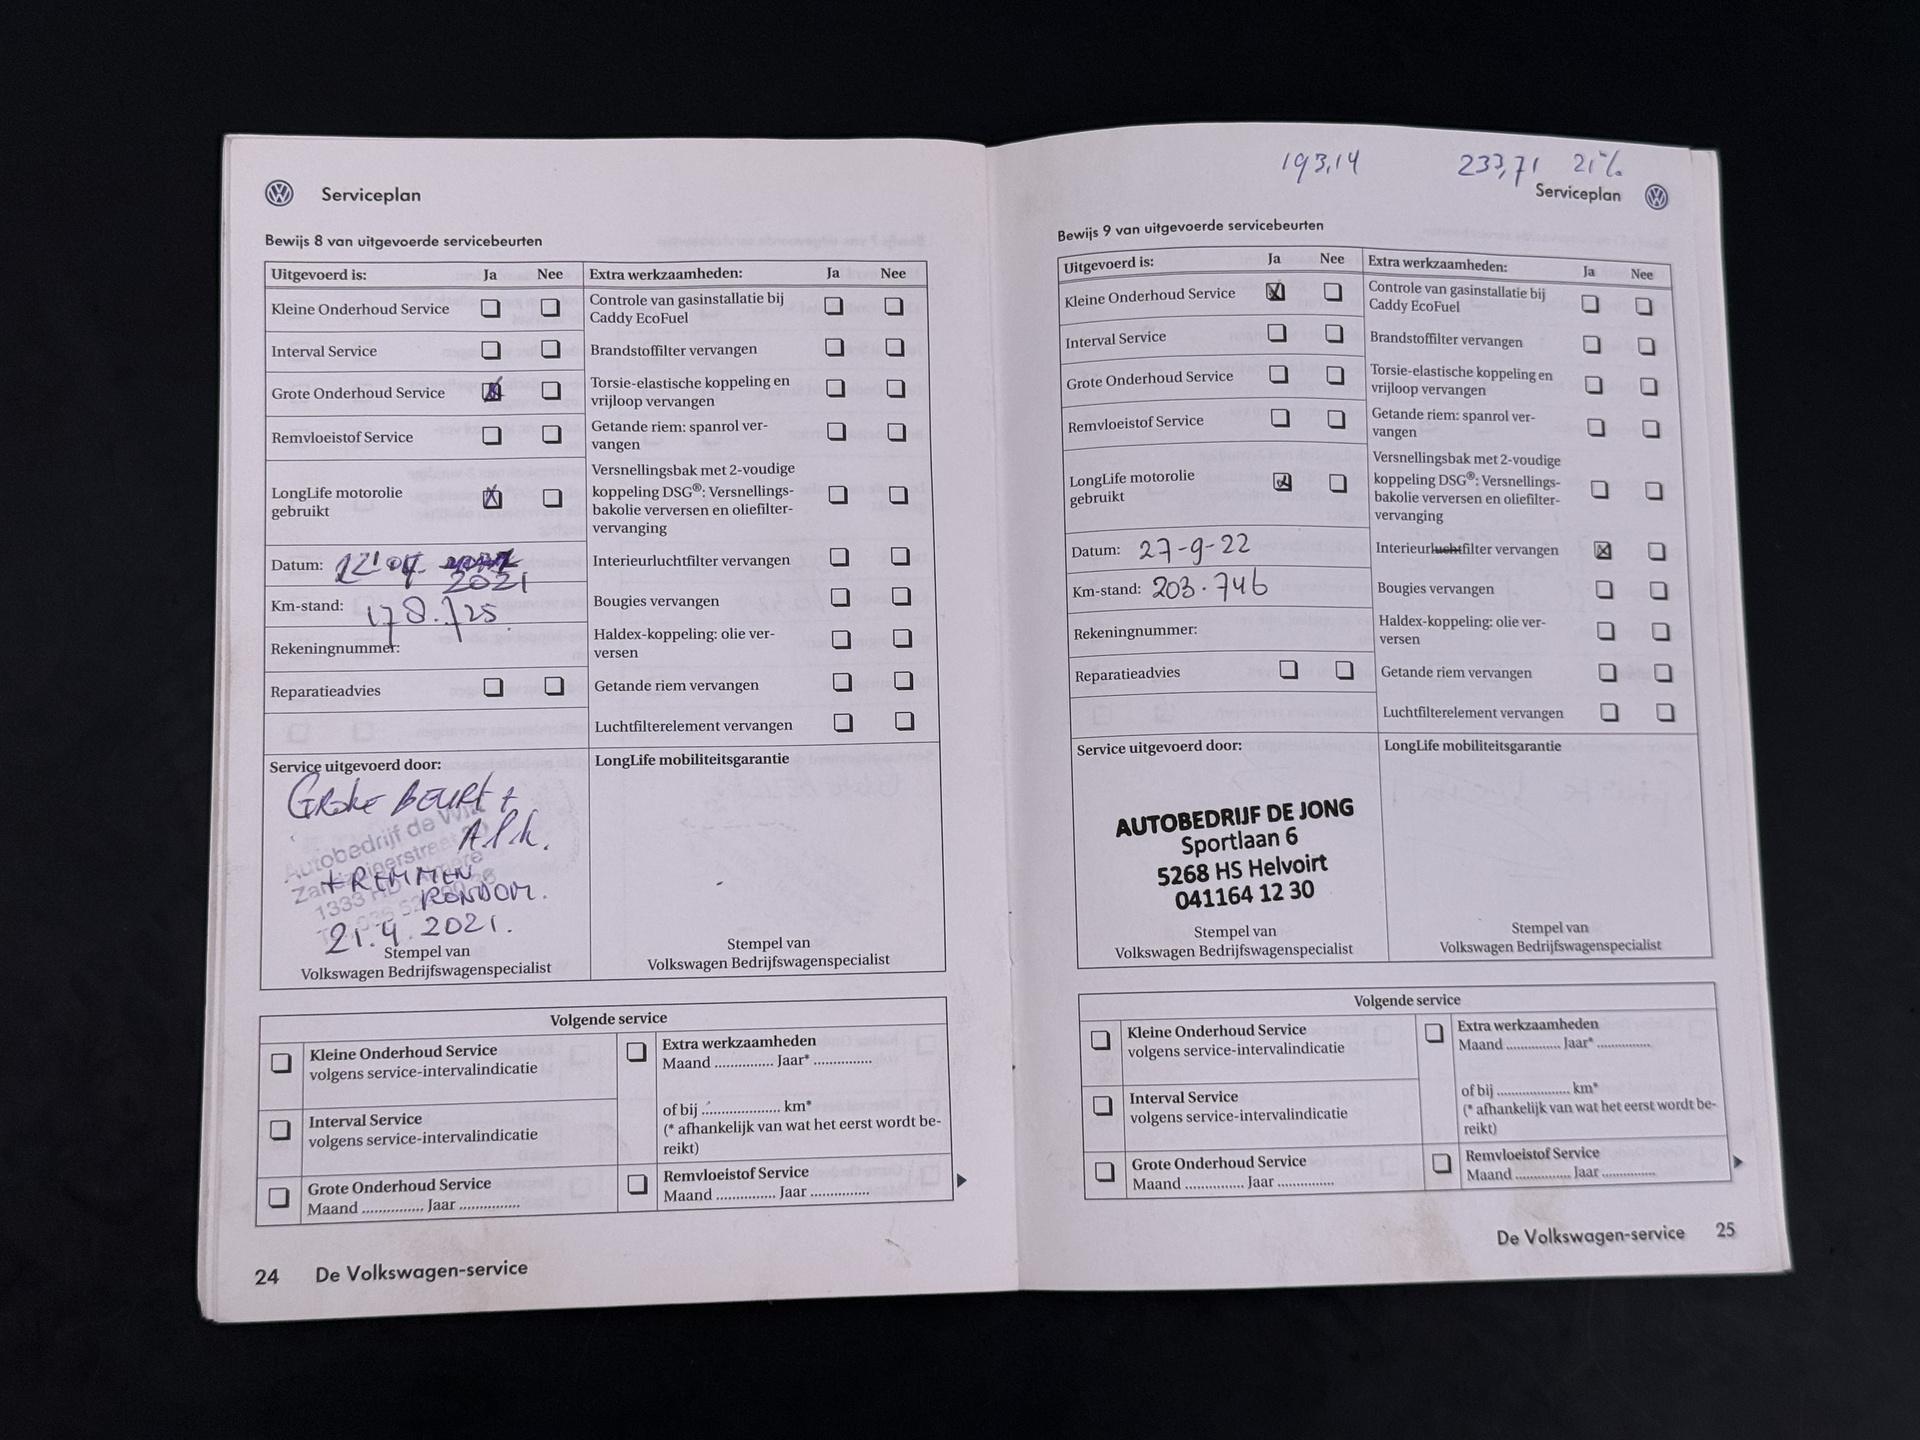 Serviceplan
Bewijs 8 van uitgevoerde servicebeurten
Uitgevoerd is: Ja Nee
Kleine Onderhoud Service
Interval Service
Grote Onderhoud Service
Remvloeistof Service
LongLife motorolie
gebruikt
Datum:
2021
Km-stand: 178.725
Rekeningnummer:
Reparatieadvies
Extra werkzaamheden: Ja Nee
Controle van gasinstallatie bij
Caddy EcoFuel
Brandstoffilter vervangen
Torsie-elastische koppeling en
vrijloop vervangen
Getande riem: spanrol ver-
vangen
Versnellingsbak met 2-voudige
koppeling DSG®: Versnellings-
bakolie verversen en oliefilter-
vervanging
Interieurluchtfilter vervangen
Bougies vervangen
Haldex-koppeling: olie ver-
versen
Getande riem vervangen
Luchtfilterelement vervangen
Service uitgevoerd door:
GROTE BEURT +
A.P.K.
+ REMMEN
RONDOM.
21.4.2021.
Autobedrijf de
1333
Stempel van
Volkswagen Bedrijfswagenspecialist
LongLife mobiliteitsgarantie
Stempel van
Volkswagen Bedrijfswagenspecialist
Volgende service
Kleine Onderhoud Service
volgens service-intervalindicatie
Interval Service
volgens service-intervalindicatie
Grote Onderhoud Service
Maand ............... Jaar ...............
Extra werkzaamheden
Maand ............... Jaar* ...............
of bij .................... km*
(* afhankelijk van wat het eerst wordt be-
reikt)
Remvloeistof Service
Maand ............... Jaar ...............
24 De Volkswagen-service
193,14 233,71 21%
Serviceplan
Bewijs 9 van uitgevoerde servicebeurten
Uitgevoerd is: Ja Nee
Kleine Onderhoud Service
Interval Service
Grote Onderhoud Service
Remvloeistof Service
LongLife motorolie
gebruikt
Datum: 27-9-22
Km-stand: 203.746
Rekeningnummer:
Reparatieadvies
Extra werkzaamheden: Ja Nee
Controle van gasinstallatie bij
Caddy EcoFuel
Brandstoffilter vervangen
Torsie-elastische koppeling en
vrijloop vervangen
Getande riem: spanrol ver-
vangen
Versnellingsbak met 2-voudige
koppeling DSG®: Versnellings-
bakolie verversen en oliefilter-
vervanging
Interieurluchtfilter vervangen
Bougies vervangen
Haldex-koppeling: olie ver-
versen
Getande riem vervangen
Luchtfilterelement vervangen
Service uitgevoerd door:
AUTOBEDRIJF DE JONG
Sportlaan 6
5268 HS Helvoirt
041164 12 30
Stempel van
Volkswagen Bedrijfswagenspecialist
LongLife mobiliteitsgarantie
Stempel van
Volkswagen Bedrijfswagenspecialist
Volgende service
Kleine Onderhoud Service
volgens service-intervalindicatie
Interval Service
volgens service-intervalindicatie
Grote Onderhoud Service
Maand ............... Jaar ...............
Extra werkzaamheden
Maand ............... Jaar* ...............
of bij .................... km*
(* afhankelijk van wat het eerst wordt be-
reikt)
Remvloeistof Service
Maand ............... Jaar ...............
De Volkswagen-service 25